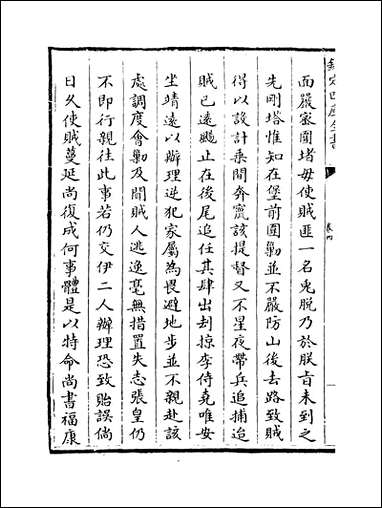 面嚴密圍堵毋使賊匪一名兎脫乃於朕㫖未到之
先剛塔惟知在堡前圍勦並不嚴防山後去路致賊
得以設計乗間奔竄該提督又不星夜帶兵追捕迨
賊已逺颺止在後尾追任其肆出刦掠李侍堯唯安
坐靖逺以辦理逆犯家屬為畏避地步並不親赴該
處調度會勦及聞賊人逃逸毫無措置失志張皇仍
不即行親往此事若仍交伊二人辦理恐致貽誤倘
日久使賊蔓延尚復成何事體是以特命尚書福康